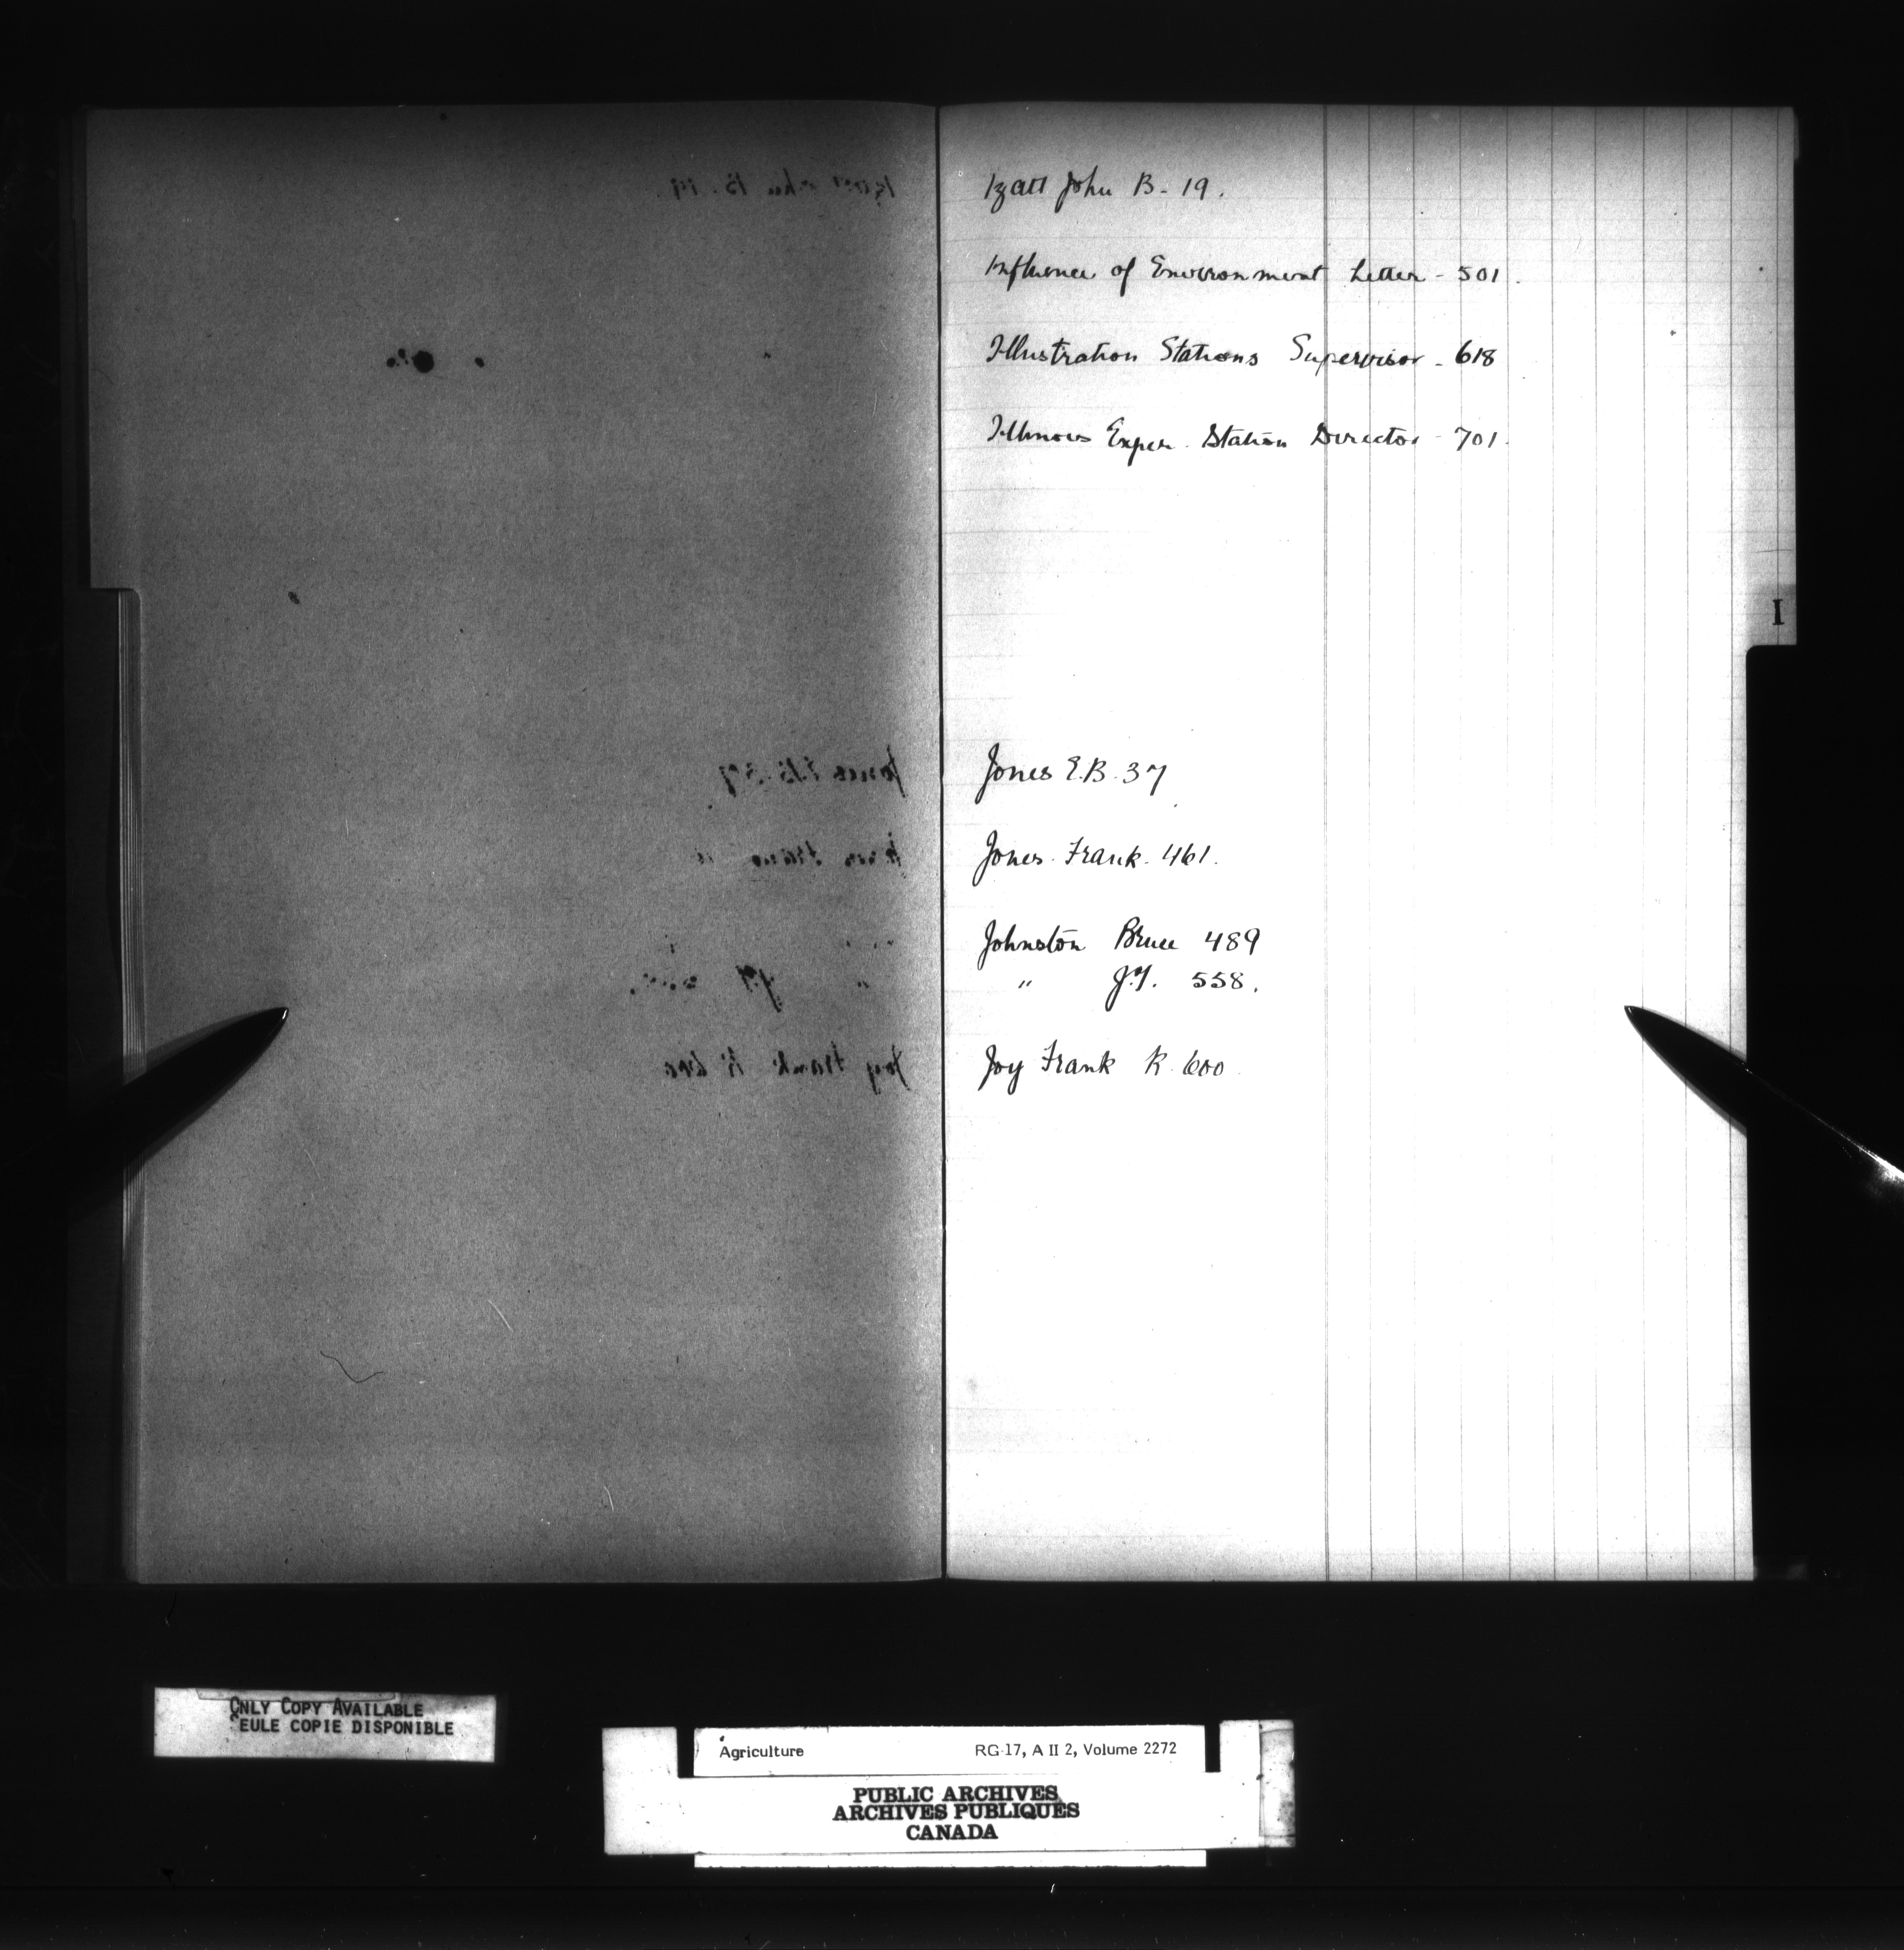 Izatt John B - 19.
Influence of Environment Letter - 501.
Illustration Stations Supervisor - 618
Illinois Exper. Station Director - 701.
I
Jones E.B. 37
Jones Frank. 461.
Johnston Bruce 489
" J.Y. 558.
Joy Frank R. 600
ONLY COPY AVAILABLE
SEULE COPIE DISPONIBLE
Agriculture RG 17, A II 2, Volume 2272
PUBLIC ARCHIVES
ARCHIVES PUBLIQUES
CANADA